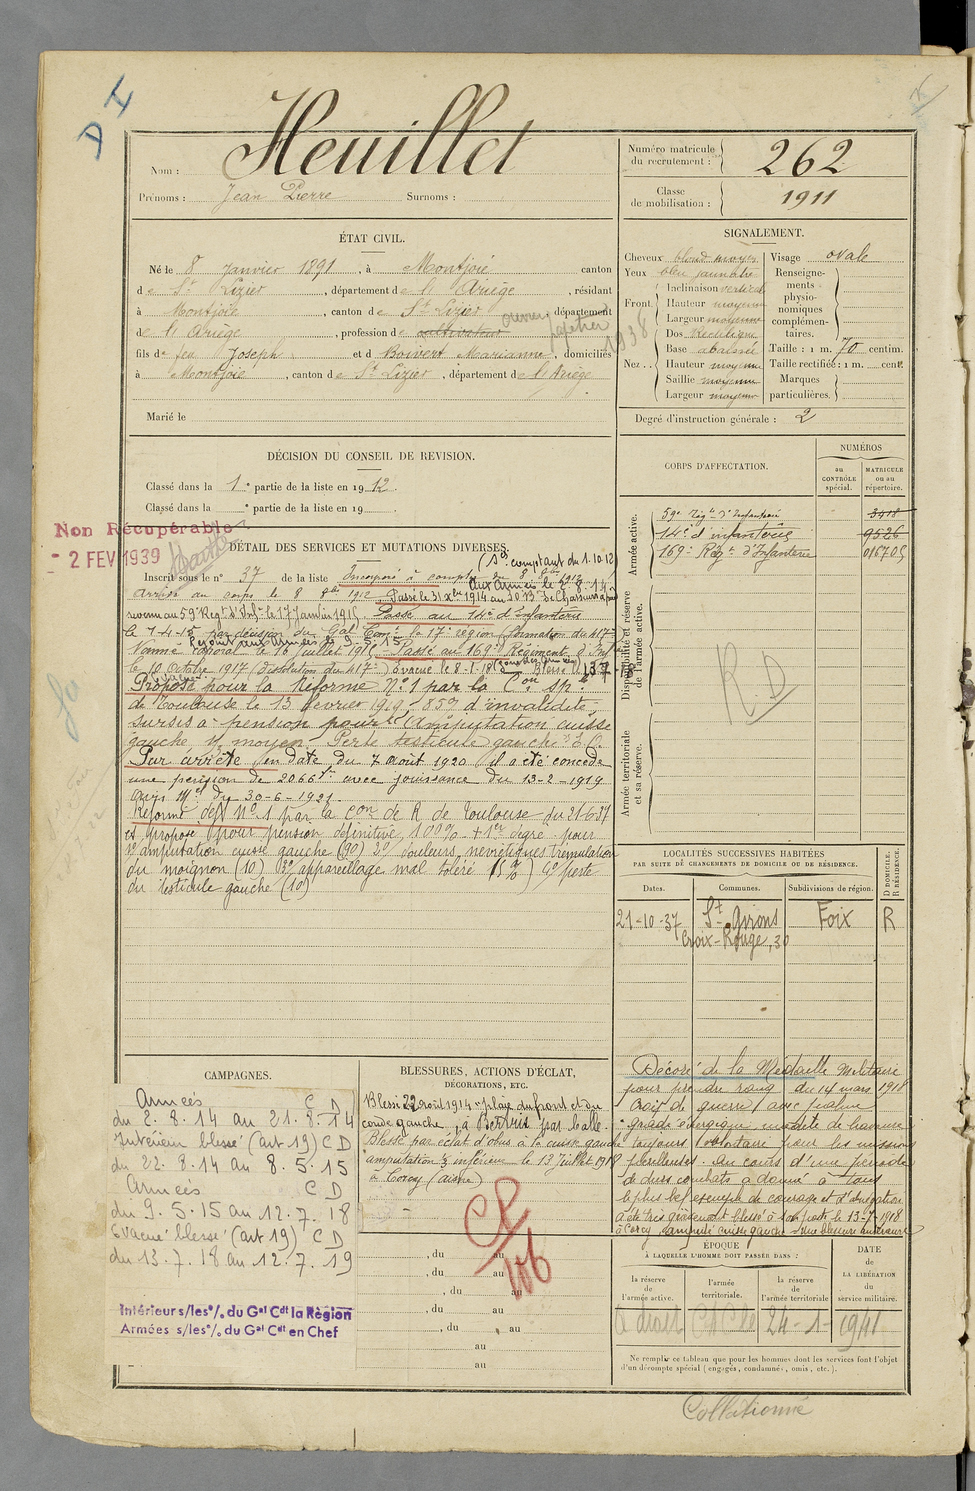 A I
Heuillet
Nom :
Prénoms : Jean Pierre Surnoms :
Numéro matricule du recrutement : 262
Classe de mobilisation : 1911
ÉTAT CIVIL.
Né le 8 Janvier 1891, à Montjoie canton
de St Lizier, département de l'Ariège, résidant
à Montjoie, canton de St Lizier, département
de l'Ariège, profession de cultivateur ouvrier papetier 1938
fils de feu Joseph et de Boivent Marianne, domiciliés
à Montjoie, canton de St Lizier, département de l'Ariège
Marié le
SIGNALEMENT.
Cheveux blond moyen Visage ovale
Yeux bleu jaunâtre
Front Inclinaison verticale
Hauteur moyenne
Largeur moyenne
Nez Dos Rectiligne
Base abaissée
Hauteur moyenne
Saillie moyenne
Largeur moyenne
Renseignements physionomiques complémentaires.
Taille : 1 m. 70 centim.
Taille rectifiée : 1 m. cent.
Marques particulières.
Degré d'instruction générale : 2
DÉCISION DU CONSEIL DE REVISION.
Classé dans la 1e partie de la liste en 1912.
Classé dans la e partie de la liste en 19
Non Récupérable
- 2 FEV 1939
DÉTAIL DES SERVICES ET MUTATIONS DIVERSES.
(Sce comptant du 1.10.12
Inscrit sous le n° 37 de la liste Incorporé à compter du 8 8bre 1912
Aux Armées le 2.8.14
Arrivé au corps le 8 8bre 1912. Passé le 31 Xbre 1914 au
revenu au 59e Régt d'Inf. le 17 Janvier 1915 Passé au 14e d'infanterie
le 1-4-15 par décision du Gal Comt la 17e région (formation du 417e
Reparti aux Armées le 9.5.15
Nommé caporal le 16 Juillet 1915 - Passé au 169e Régiment d'Infie
le 10 Octobre 1917 (Dissolution du 417e) Évacué le 8-1-18 Blessé le 13-7-18
Proposé pour la Réforme N° 1 par la Con spe
de Toulouse le 13 février 1919 - 85% d'invalidité,
sursis à pension pour Amputation cuisse
gauche 1/3 moyen. Perte testicule gauche
Par arrêté en date du 7 Août 1920 il a été concédé
une pension de 2066f avec jouissance du 13-2-1919
avis Mel du 30-6-1921.
Réformé déff N° 1 par la Con de R de Toulouse du 21-6-37
et proposé pour pension définitive 100% + 1er degré pour
1° amputation cuisse gauche (90) 2° douleurs, névretiques, trémulation
du moignon (10) 3° appareillage mal toléré (5%) 4° perte
du testicule gauche (10)
CORPS D'AFFECTATION.
NUMÉROS
au CONTRÔLE spécial.
MATRICULE ou au répertoire.
Armée active.
59e Régt d'Infanterie 3418
14e d'infanterie 9526
169e Régt d'Infanterie 016705
Disponibilité et réserve de l'armée active.
R.D
Armée territoriale et sa réserve.
LOCALITÉS SUCCESSIVES HABITÉES
PAR SUITE DE CHANGEMENTS DE DOMICILE OU DE RÉSIDENCE.
Dates. Communes. Subdivisions de région. D DOMICILE. R RÉSIDENCE.
21-10-37 St-Girons Foix R
Croix-Rouge, 30
CAMPAGNES.
Armées C D
du 2.8.14 au 21.8.14
Intérieur blessé (art 19) C D
du 22.8.14 au 8.5.15
Armées C D
du 9.5.15 au 12.7.18
Évacué blessé (art 19) C D
du 13.7.18 au 12.7.19
Intérieur s/les % du Gal Cdt la Région
Armées s/les % du Gal Cdt en Chef
BLESSURES, ACTIONS D'ÉCLAT,
DÉCORATIONS, ETC.
Blessé 22 août 1914 "plaie du front et du
coude gauche", à Bertrix par balle.
Blessé par éclat d'obus à la cuisse gauche
amputation 1/3 inférieur le 13 Juillet 1918
à Corcy (Aisne)
CP
106
, du au
, du au
, du au
, du au
, du au
au
au
Décoré de la Médaille Militaire
pour prendre rang du 14 mars 1918
Croix de guerre avec palme
gradé énergique modèle de bravoure
toujours volontaire pour les missions
périlleuses. Au cours d'une période
de durs combats a donné à tous
le plus bel exemple de courage et d'abnégation
a été très grièvement blessé à son poste le 13-7-1918
à Corcy, amputé cuisse gauche. Une blessure antérieure
ÉPOQUE
À LAQUELLE L'HOMME DOIT PASSER DANS :
la réserve de l'armée active.
l'armée territoriale.
la réserve de l'armée territoriale
DATE DE LA LIBÉRATION du service militaire.
24-1-1941
Ne remplir ce tableau que pour les hommes dont les services font l'objet
d'un décompte spécial (engagés, condamnés, omis, etc.).
Collationné